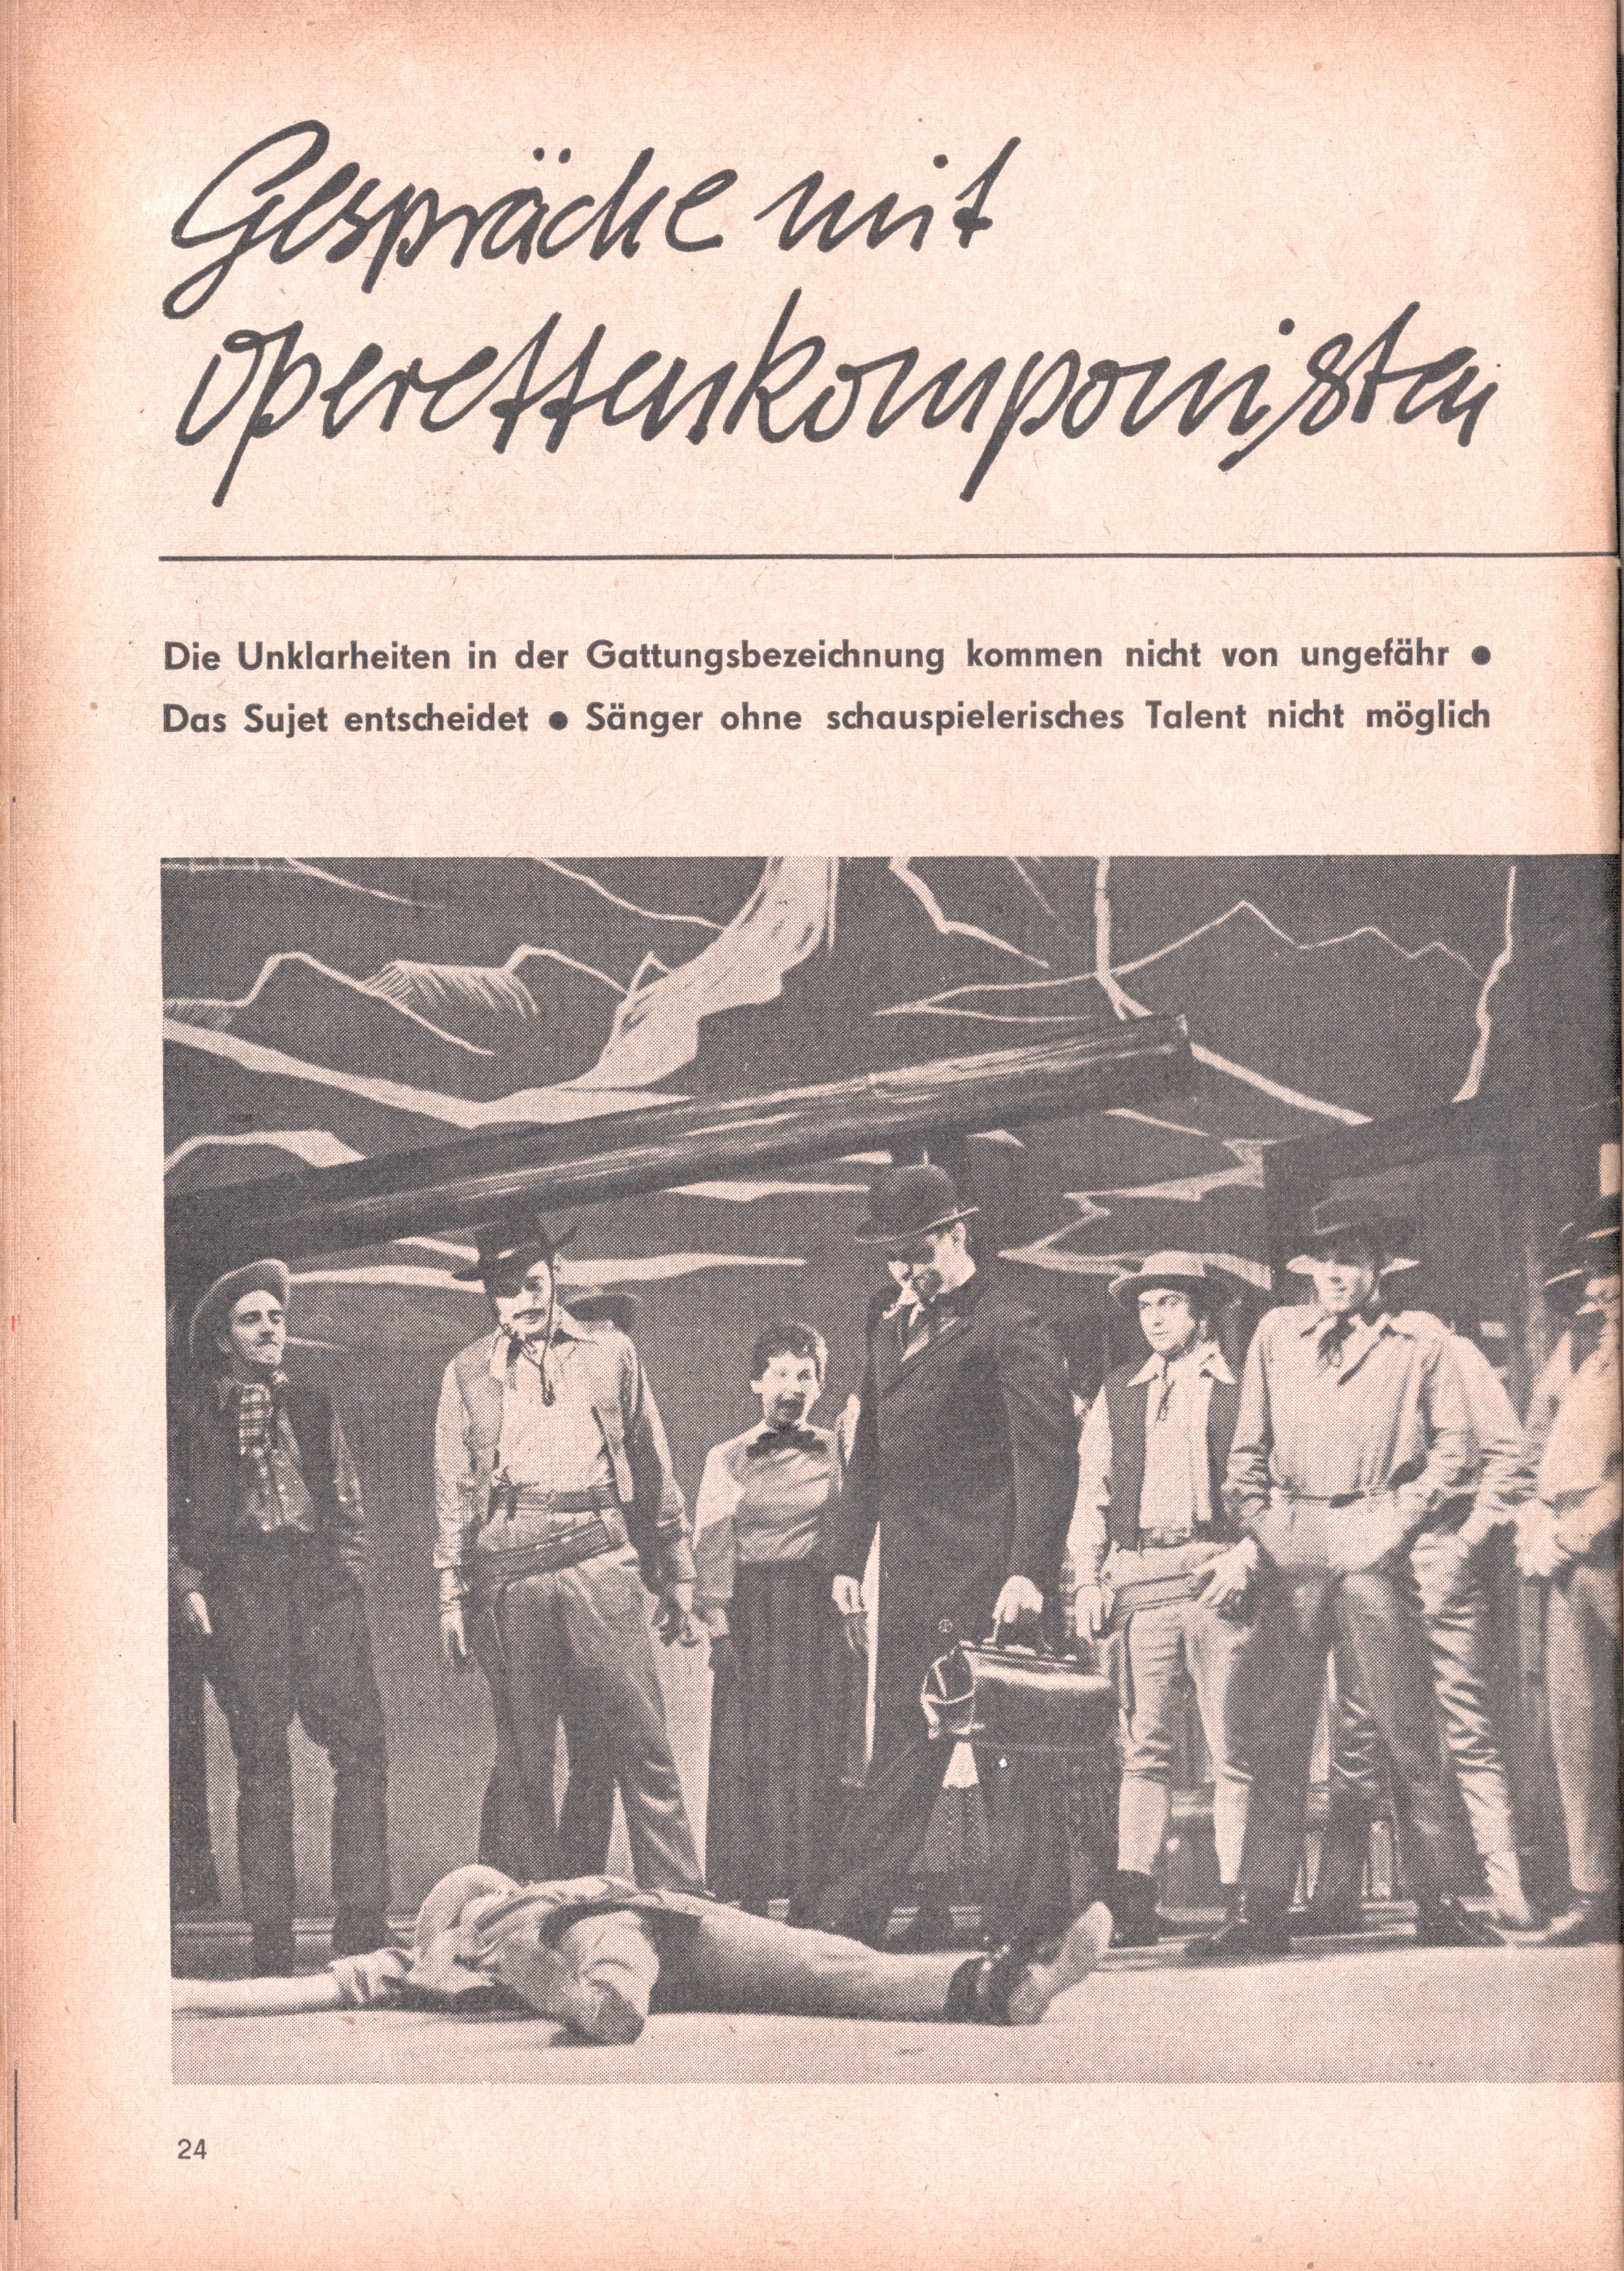 Gespräche mit
Operettenkomponisten
Die Unklarheiten in der Gattungsbezeichnung kommen nicht von ungefähr ●
Das Sujet entscheidet ● Sänger ohne schauspielerisches Talent nicht möglich
24